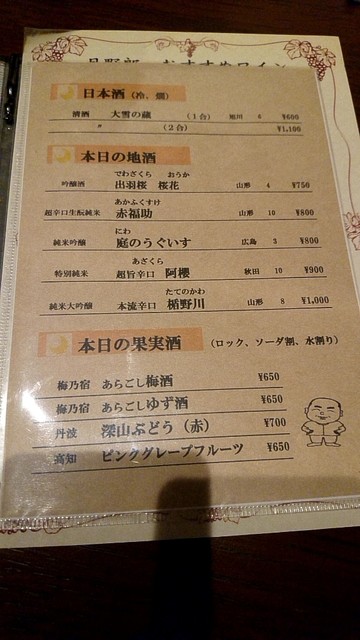 おすすめワイン
日本酒（冷、燗）
清酒 大雪の蔵 （1合） 旭川 6 ¥600
〃 （2合） ¥1,100
本日の地酒
でわざくら おうか
吟醸酒 出羽桜 桜花 山形 4 ¥750
あかふくすけ
超辛口生酛純米 赤福助 山形 10 ¥800
にわ
純米吟醸 庭のうぐいす 広島 3 ¥800
あざくら
特別純米 超旨辛口 阿櫻 秋田 10 ¥900
たてのかわ
純米大吟醸 本流辛口 楯野川 山形 8 ¥1,000
本日の果実酒 （ロック、ソーダ割、水割り）
梅乃宿 あらごし梅酒 ¥650
梅乃宿 あらごしゆず酒 ¥650
丹波 深山ぶどう（赤） ¥700
高知 ピンクグレープフルーツ ¥650